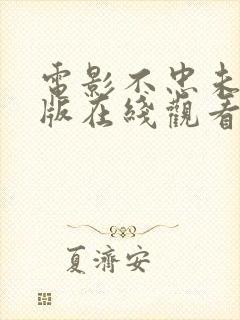 電影不忠未
版在綫觀看
夏濟安